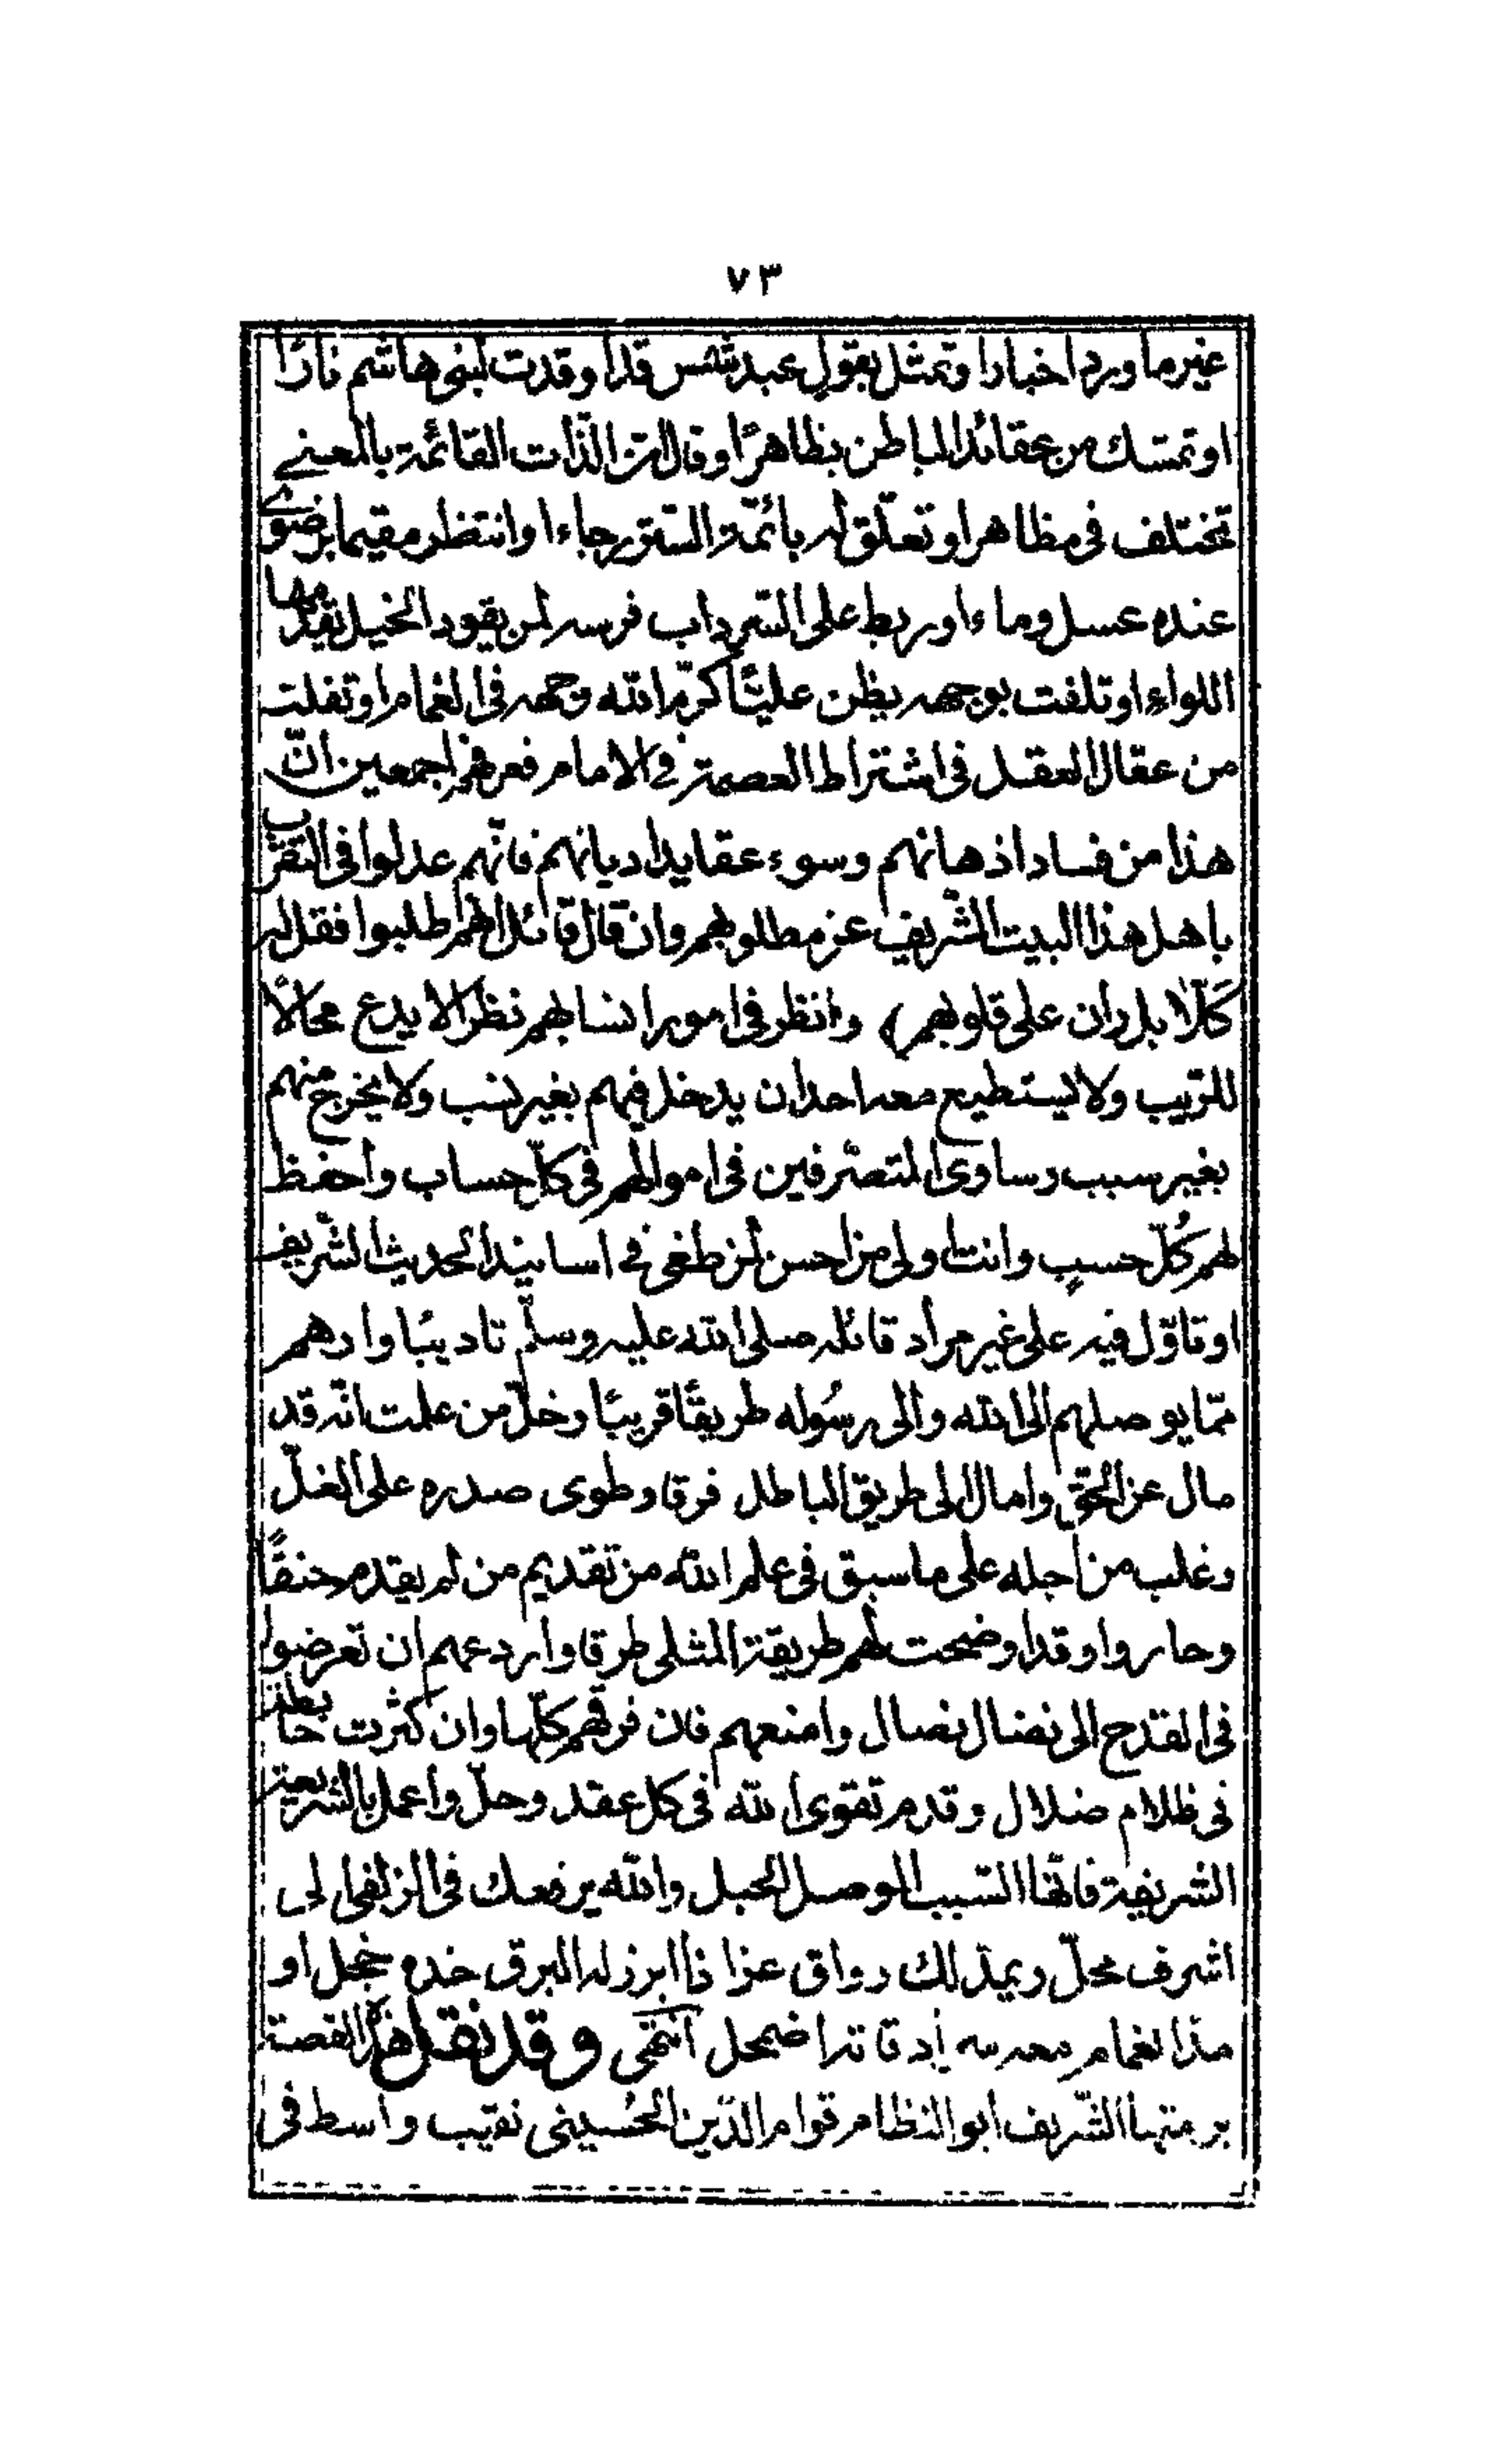 ٧٣
غير ما ورد اخبارا وتمثل بقول عبد شمس قد اوقدت لبنو هاشم نارًا
او تمسّك من عقائد الباطن بظاهرًا وقال انّ الذّات القائمة بالمعنے
تختلف فى مظاهر او تعلّق له بائمّة الستّور جاءا وانتظر مقيما برضوے
عنده عسل وماء او ربط على السّرداب فرسه لمن يقود الخيل يقدمها
اللواء او تلفت بوجهه يظن عليًّا كرّم الله وجهه فى الغمام او تفلت
من عقال العقل فى اشتراط العصمة فے الامام فعرفهم اجمعين انّ
هذا من فساد اذهانهم وسوء عقايد اديانهم فانّهم عدلوا فى التقرّب
باهل هذا البيت الشّريف عن مطلوبهم وان قال قائل انهم طلبوا فقل له
كَلّا بل ران على قلوبهم) وانظر فى امور انسابهم نظرا لا يدع مجالاً
للريب ولا يستطيع معه احد ان يدخل فيهم بغير نسب ولا يخرج منهم
بغير سبب وساوى المتصرّفين فى اموالهم فى كلّ حساب واحفظ
لهم كُلّ حسبٍ وانت اولى من احسن لمن طغى فے اسانيد الحديث الشّريف
او تاوّل فيه على غير مراد قائله صلى الله عليه وسلّم تاديبًا وارهم
ممّا يوصلهم الى الله والى رسُوله طريقًا قريبًا وخلّ من علمت انّه قد
مال عن الحقّ وامال الى طريق الباطل فرقا وطوى صدره على الغلّ
وغلب من اجله على ما سبق فى علم الله من تقديم من لم يقدم حنقًا
وحاروا وقد اوضحت لهم طريقة المثلى طرقا واردعهم ان تعرضوا
فى القدح الى نضال نصال وامنعهم فان فرقهم كلّها وان كثرت خابطة
فى ظلام ضلال وقدم تقوى الله فى كل عقد وحلّ واعمل بالشريعة
الشريفة فانّها السّبب الموصل الحبل والله يرفعك فى الزلفى الى
اشرف محلّ ويمدّ لك رواق عز اذا ابرز له البرق خده خجل او
مدّ الغمام معه اضمحل انتهى وقد نقل هذه القصة
برمتها الشّريف ابو النظام قوام الدّين الحُسينى نقيب واسط فى